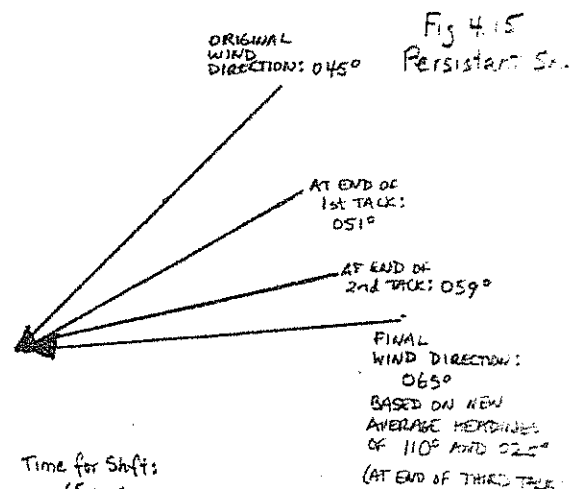 Fig 4.15
Persistant
ORIGINAL
WIND
DIRECTION: 045°
AT END OF
1st TACK:
051°
AT END OF
2nd TACK: 059°
FINAL
WIND DIRECTION:
065°
BASED ON NEW
AVERAGE HEADINGS
OF 110° AND
(AT END OF THIRD TACK
Time for Shift: